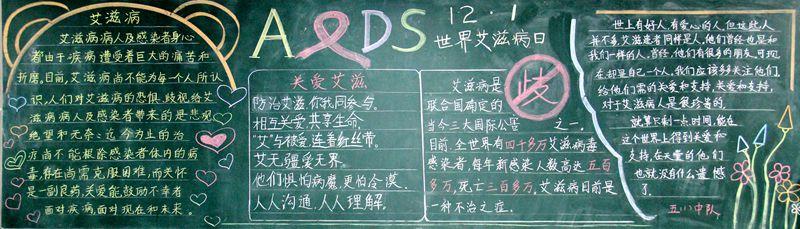 艾滋病
艾滋病病人及感染者身心
都由于疾病遭受着巨大的痛苦和
折磨。目前,艾滋病尚不能为每一个人所认
识,人们对艾滋病的恐惧、歧视给艾
滋病病人及感染者带来的是悲观、
绝望和无奈;迄今为止的治
疗尚不能根除感染者体内的病
毒,存在尚需克服困难,而关怀
是一副良药,关爱能鼓励不幸者
面对疾病,面对现在和未来。
AIDS
12·1
世界艾滋病日
关爱艾滋
防治艾滋,你我同参与。
相互关爱,共享生命。
“艾”与被爱,连着红丝带。
艾无疆,爱无界。
他们惧怕病魔,更怕冷漠。
人人沟通,人人理解。
歧
艾滋病是
联合国确定的
当今三大国际公害之一,
目前,全世界有四十多万艾滋病毒
感染者,每年新感染人数高达五百
多万,死亡三百多万,艾滋病目前是
一种不治之症。
世上有好人,有爱心的人,但这些人
并不多,艾滋患者同样是人,他们曾经也是和
我们一样的人,曾经,他们有很多的朋友,可现
在却是自己一个人,我们应该多关注他们,
给他们需的关爱和支持,关爱和支持,
对于艾滋病人是很珍贵的。
就算只剩一点时间,能在
这个世界上得到关爱和
支持,在天堂的他们
也就没有什么遗憾
了
五(1)中队